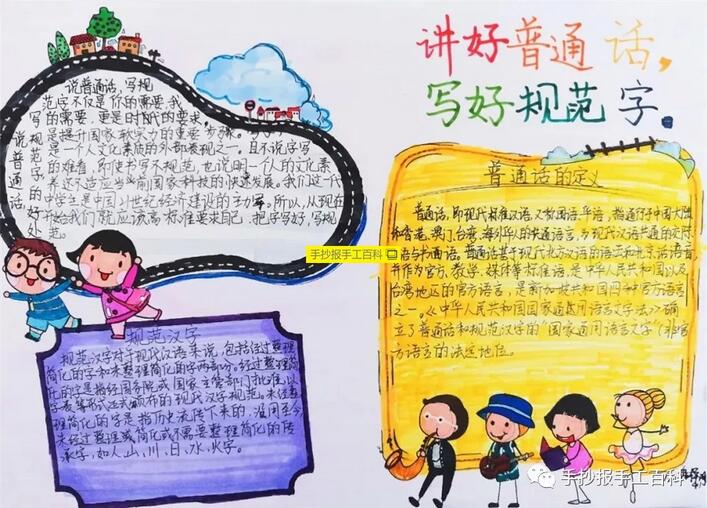 讲好普通话,
写好规范字.
说普通话,写规范字的好处
说普通话,写规
范字不仅是你的需要,我
的需要,更是时代的要求,
是提升国家软实力的重要
是一个人文化素质的外部表现之一。且不说字写
的难看,即使书写不规范,也说明一个人的文化素
养还不适应当前国家科技的快速发展。我们这一代
中学生是中国21世纪经济建设的主力军。所以,从现在
开始我们就应该高标准要求自己,把字写好,写规
范。
手抄报手工百科
普通话的定义
普通话,即现代标准汉语,又称国语、华语,指通行于中国大陆
和香港、澳门、台湾、海外华人的共通语言,为现代汉语共通的交际
口语与书面语。普通话基于现代北方汉语的语法和北京话语音
并作为官方、教学、媒体等标准语,是中华人民共和国以及
台湾地区的官方语言,是新加坡共和国四种官方语言
之一。《中华人民共和国国家通用语言文字法》确
立了普通话和规范汉字的“国家通用语言文字(非官
方语言)的法定地位。
规范汉字
规范汉字对于现代汉语来说,包括经过整理
简化的字和未整理简化的字两部份。经过整理简
化的字是指经国务院或国家主管部门批准以
字表等形式正式颁布的现代汉字规范。未经整
理简化的字是指历史流传下来的,沿用至今
未经过整理或简化或不需要整理简化的传
承字,如人,山,川,日,水,火字。
手抄报手工百科